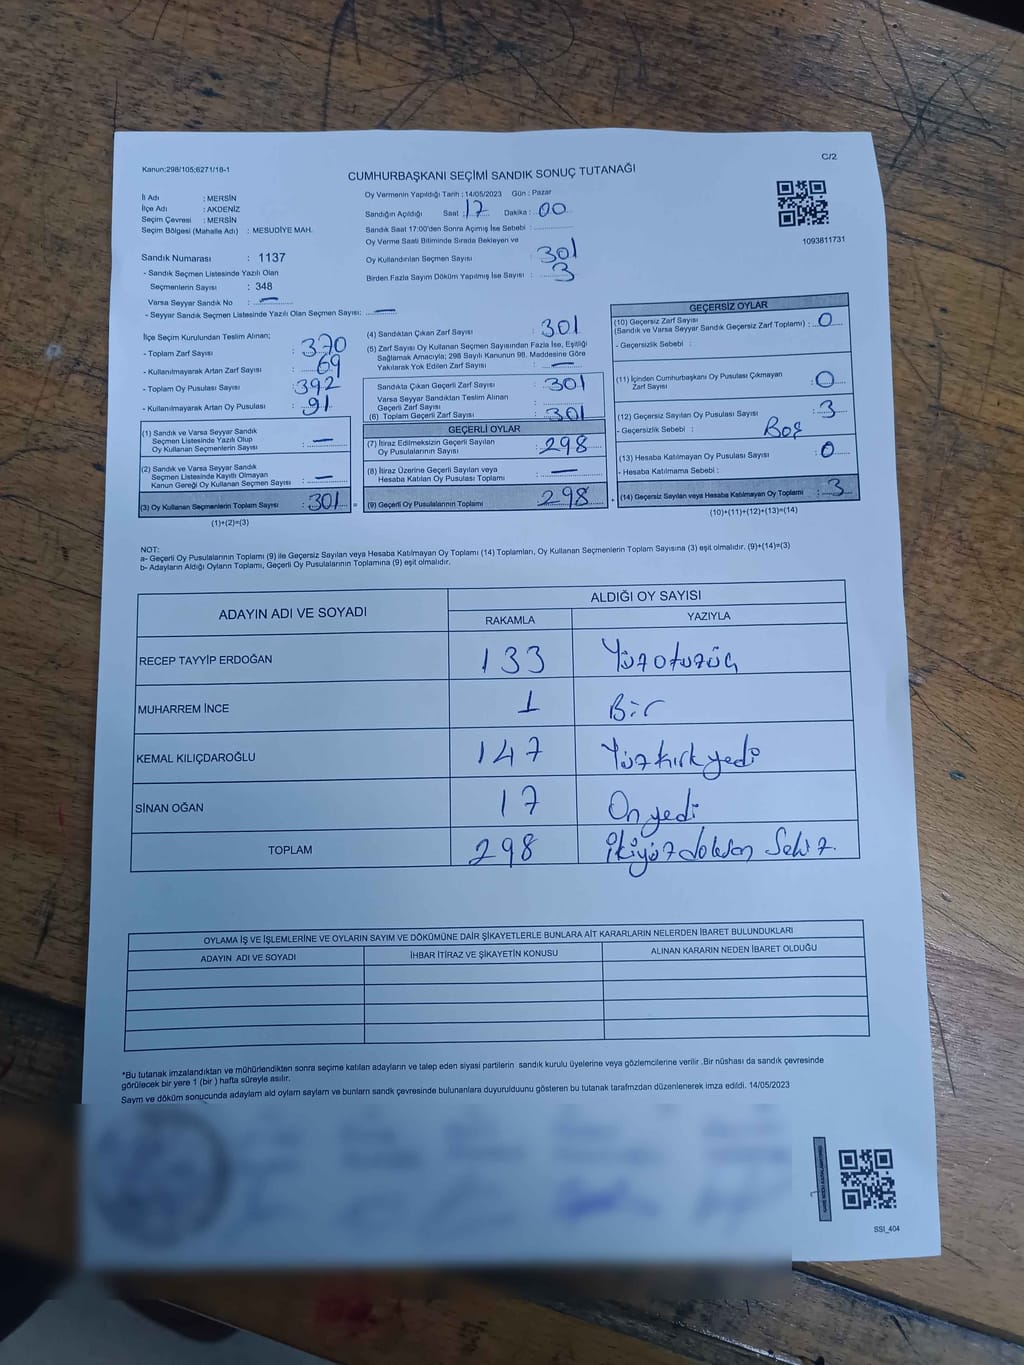 Kanun:298/105;6271/18-1
C/2
CUMHURBAŞKANI SEÇİMİ SANDIK SONUÇ TUTANAĞI
1093811731
İl Adı : MERSİN
İlçe Adı : AKDENİZ
Seçim Çevresi : MERSİN
Seçim Bölgesi (Mahalle Adı) : MESUDİYE MAH.
Sandık Numarası : 1137
- Sandık Seçmen Listesinde Yazılı Olan
Seçmenlerin Sayısı : 348
Varsa Seyyar Sandık No : —
- Seyyar Sandık Seçmen Listesinde Yazılı Olan Seçmen Sayısı: —
Oy Vermenin Yapıldığı Tarih : 14/05/2023 Gün : Pazar
Sandığın Açıldığı Saat : 17 Dakika : 00
Sandık Saat 17:00'den Sonra Açımış İse Sebebi :
Oy Verme Saati Bitiminde Sırada Bekleyen ve
Oy Kullandırılan Seçmen Sayısı : 301
Birden Fazla Sayım Döküm Yapılmış İse Sayısı : 3
İlçe Seçim Kurulundan Teslim Alınan;
- Toplam Zarf Sayısı : 370
- Kullanılmayarak Artan Zarf Sayısı : 69
- Toplam Oy Pusulası Sayısı : 392
- Kullanılmayarak Artan Oy Pusulası : 91
(1) Sandık ve Varsa Seyyar Sandık
Seçmen Listesinde Yazılı Olup
Oy Kullanan Seçmenlerin Sayısı : —
(2) Sandık ve Varsa Seyyar Sandık
Seçmen Listesinde Kayıtlı Olmayan
Kanun Gereği Oy Kullanan Seçmen Sayısı : —
(3) Oy Kullanan Seçmenlerin Toplam Sayısı : 301 =
(1)+(2)=(3)
(4) Sandıktan Çıkan Zarf Sayısı : 301
(5) Zarf Sayısı Oy Kullanan Seçmen Sayısından Fazla İse, Eşitliği
Sağlamak Amacıyla; 298 Sayılı Kanunun 98. Maddesine Göre
Yakılarak Yok Edilen Zarf Sayısı : —
Sandıkta Çıkan Geçerli Zarf Sayısı : 301
Varsa Seyyar Sandıktan Teslim Alınan
Geçerli Zarf Sayısı :
(6) Toplam Geçerli Zarf Sayısı : 301
GEÇERLİ OYLAR
(7) İtiraz Edilmeksizin Geçerli Sayılan
Oy Pusulalarının Sayısı : 298
(8) İtiraz Üzerine Geçerli Sayılan veya
Hesaba Katılan Oy Pusulası Toplamı : —
(9) Geçerli Oy Pusulalarının Toplamı : 298 +
GEÇERSİZ OYLAR
(10) Geçersiz Zarf Sayısı
(Sandık ve Varsa Seyyar Sandık Geçersiz Zarf Toplamı) : 0
- Geçersizlik Sebebi :
(11) İçinden Cumhurbaşkanı Oy Pusulası Çıkmayan
Zarf Sayısı : 0
(12) Geçersiz Sayılan Oy Pusulası Sayısı : 3
- Geçersizlik Sebebi : Boş
(13) Hesaba Katılmayan Oy Pusulası Sayısı : 0
- Hesaba Katılmama Sebebi :
(14) Geçersiz Sayılan veya Hesaba Katılmayan Oy Toplamı : 3
(10)+(11)+(12)+(13)=(14)
NOT:
a- Geçerli Oy Pusulalarının Toplamı (9) ile Geçersiz Sayılan veya Hesaba Katılmayan Oy Toplamı (14) Toplamları, Oy Kullanan Seçmenlerin Toplam Sayısına (3) eşit olmalıdır. (9)+(14)=(3)
b- Adayların Aldığı Oyların Toplamı, Geçerli Oy Pusulalarının Toplamına (9) eşit olmalıdır.
ADAYIN ADI VE SOYADI ALDIĞI OY SAYISI
RAKAMLA YAZIYLA
RECEP TAYYİP ERDOĞAN 133 Yüzotuzüç
MUHARREM İNCE 1 Bir
KEMAL KILIÇDAROĞLU 147 Yüzkırkyedi
SİNAN OĞAN 17 On yedi
TOPLAM 298 ikiyüzdoksan Sekiz.
OYLAMA İŞ VE İŞLEMLERİNE VE OYLARIN SAYIM VE DÖKÜMÜNE DAİR ŞİKAYETLERLE BUNLARA AİT KARARLARIN NELERDEN İBARET BULUNDUKLARI
ADAYIN ADI VE SOYADI İHBAR İTİRAZ VE ŞİKAYETİN KONUSU ALINAN KARARIN NEDEN İBARET OLDUĞU
*Bu tutanak imzalandıktan ve mühürlendikten sonra seçime katılan adayların ve talep eden siyasi partilerin sandık kurulu üyelerine veya gözlemcilerine verilir .Bir nüshası da sandık çevresinde
görülecek bir yere 1 (bir ) hafta süreyle asılır.
Sayım ve döküm sonucunda adaylam ald oylam saylam ve bunların sandk çevresinde bulunanlara duyurulduunu gösteren bu tutanak tarafmzdan düzenlenerek imza edildi. 14/05/2023
SSI_404